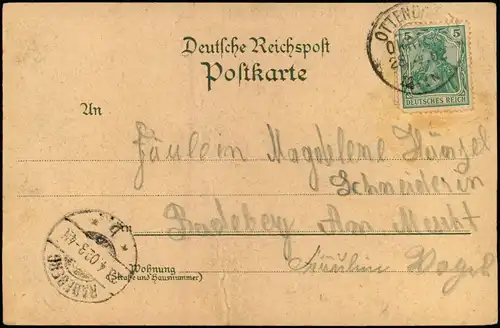 Deutsche Reichspost
Postkarte
OTTEND
5 5
DEUTSCHES REICH
An
Fäulein Magdelene Hünsel
Schneiderin
in Radeberg Am Markt
Wohnung
(Straße und Hausnummer)
Fräulin Vogel
RADEBERG